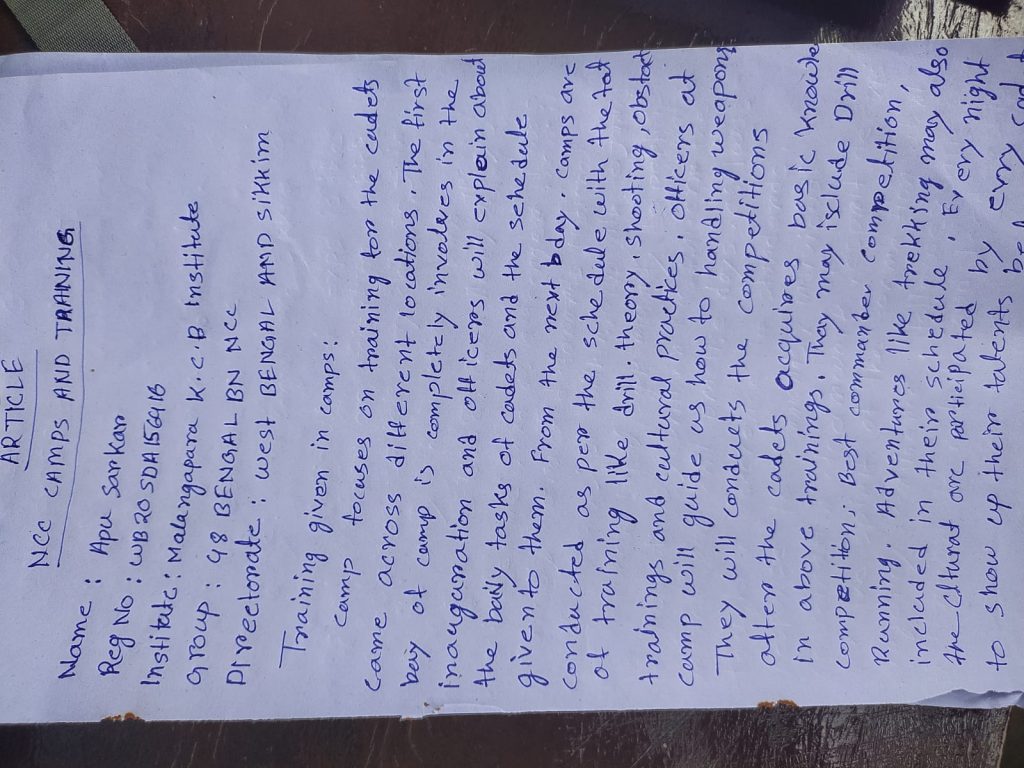 ARTICLE
NCC CAMPS AND TRAINING
Name : Apu Sarkar
Reg No : WB20SDA156416
Institute: Malangapara K.C.B Institute
Group : 98 BENGAL BN NCC
Directorate : West BENGAL AND Sikkim
Training given in camps:
camp focuses on training for the cadets
came across different locations. The first
bay of camp is completely involves in the
inauguration and officers will explain about
the baily tasks of cadets and the schedule
given to them. From the next bday. camps are
conducted as per the schedule with the tat
of training like drill. theory, shooting, obstact
trainings and cultural practices. officers at
camp will guide us how to handling weapons
They will conducts the competitions
after the cadets acquires basic knowle
in above trainings. They may isclude Drill
competiton; Best commander competition,
Running. Adventures like trekking may also
included in their schedule. Every night
the clturat are participated by enry cadt
to show up their talents